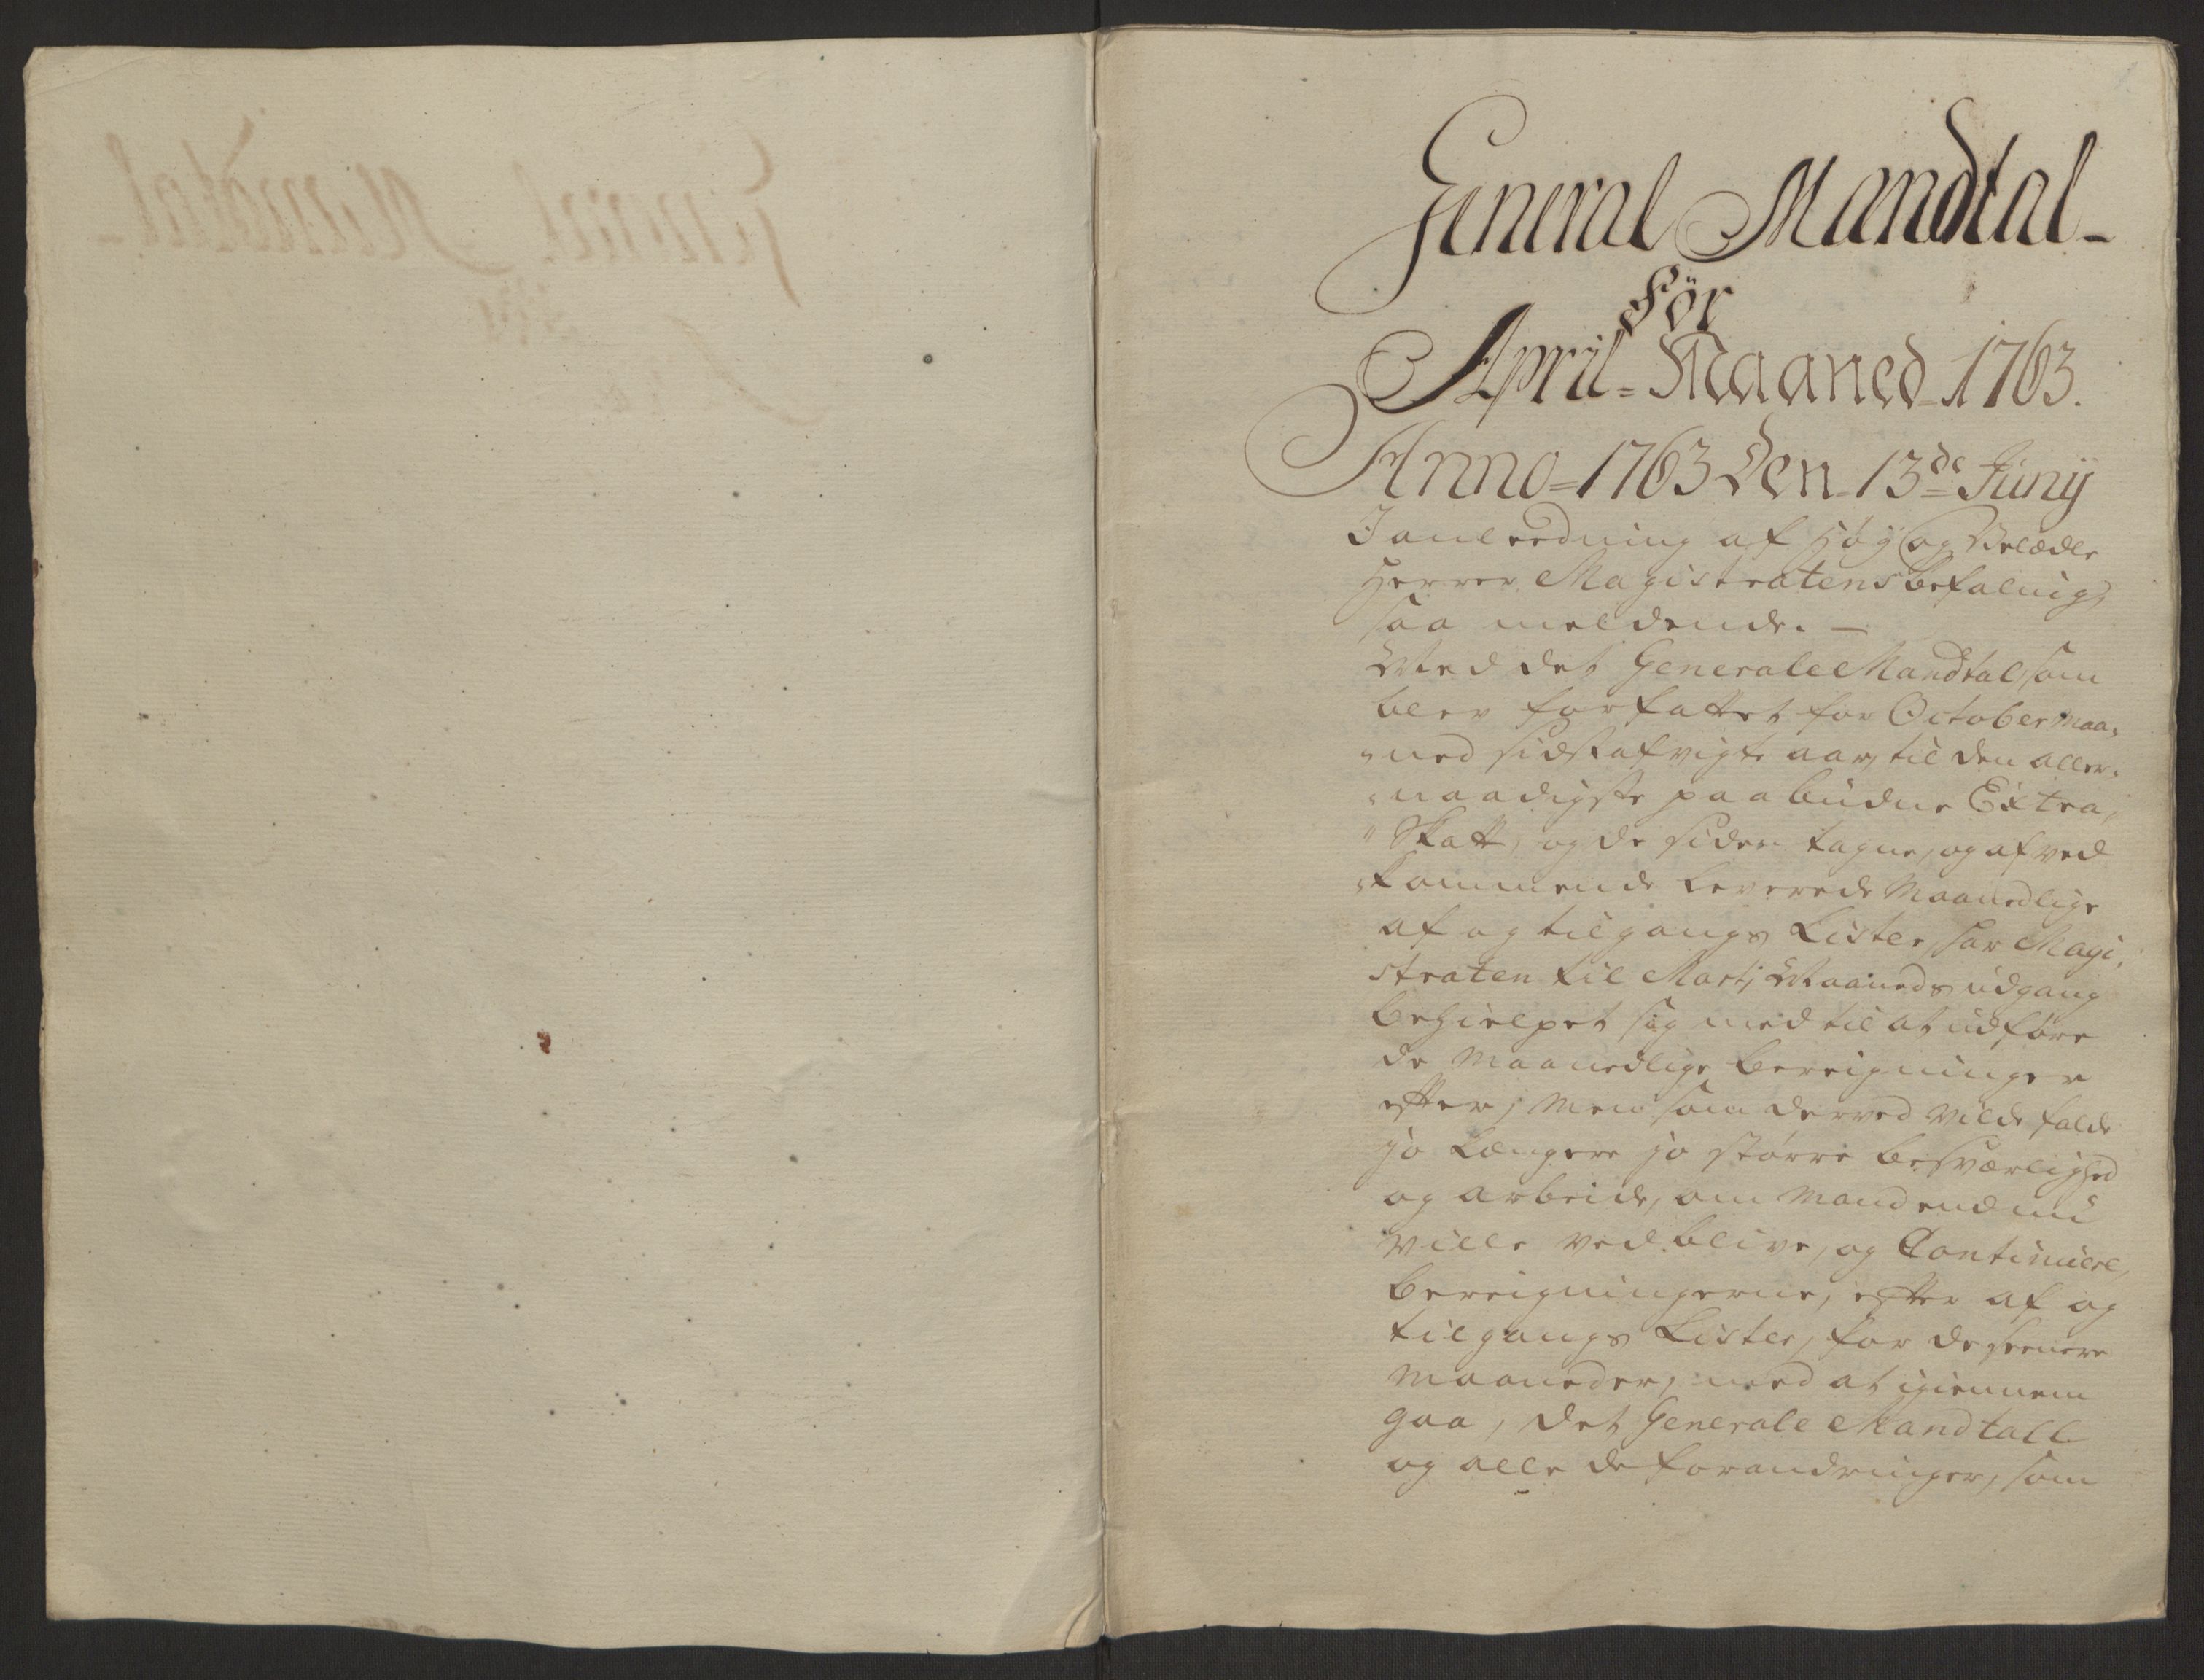 General Mandtal-
För
April- Maaned 1763.
Anno 1763 Den 13de Junij
I anleedning af Høy og Velædle
Herrer Magistratens befalning,
saa meldende. -
Med det Generale Mandtal, som
blev forfattet for October Maa,
"ned sidst afvigte aar, til den aller,
"naadigste paabudne Extra,
"Skatt, og de siden tagne, og af ved
"kommende leverede Maanedlige
af og tilgangs Lister, har Magi,
straten til Martj Maaneds udgang
behielpet sig med til at udføre
de Maanedlige bereigninger
efter; Men som derved vilde falde
jo længere jo større besværlighed
og arbeide, om Mand end nu
ville vedblive, og Continuere,
bereigningerne, efter af og
tilgangs Lister, for de seenere
Maaneder, med at igiennem
gaa, det Generale Mandtall
og alle de forandringer, som